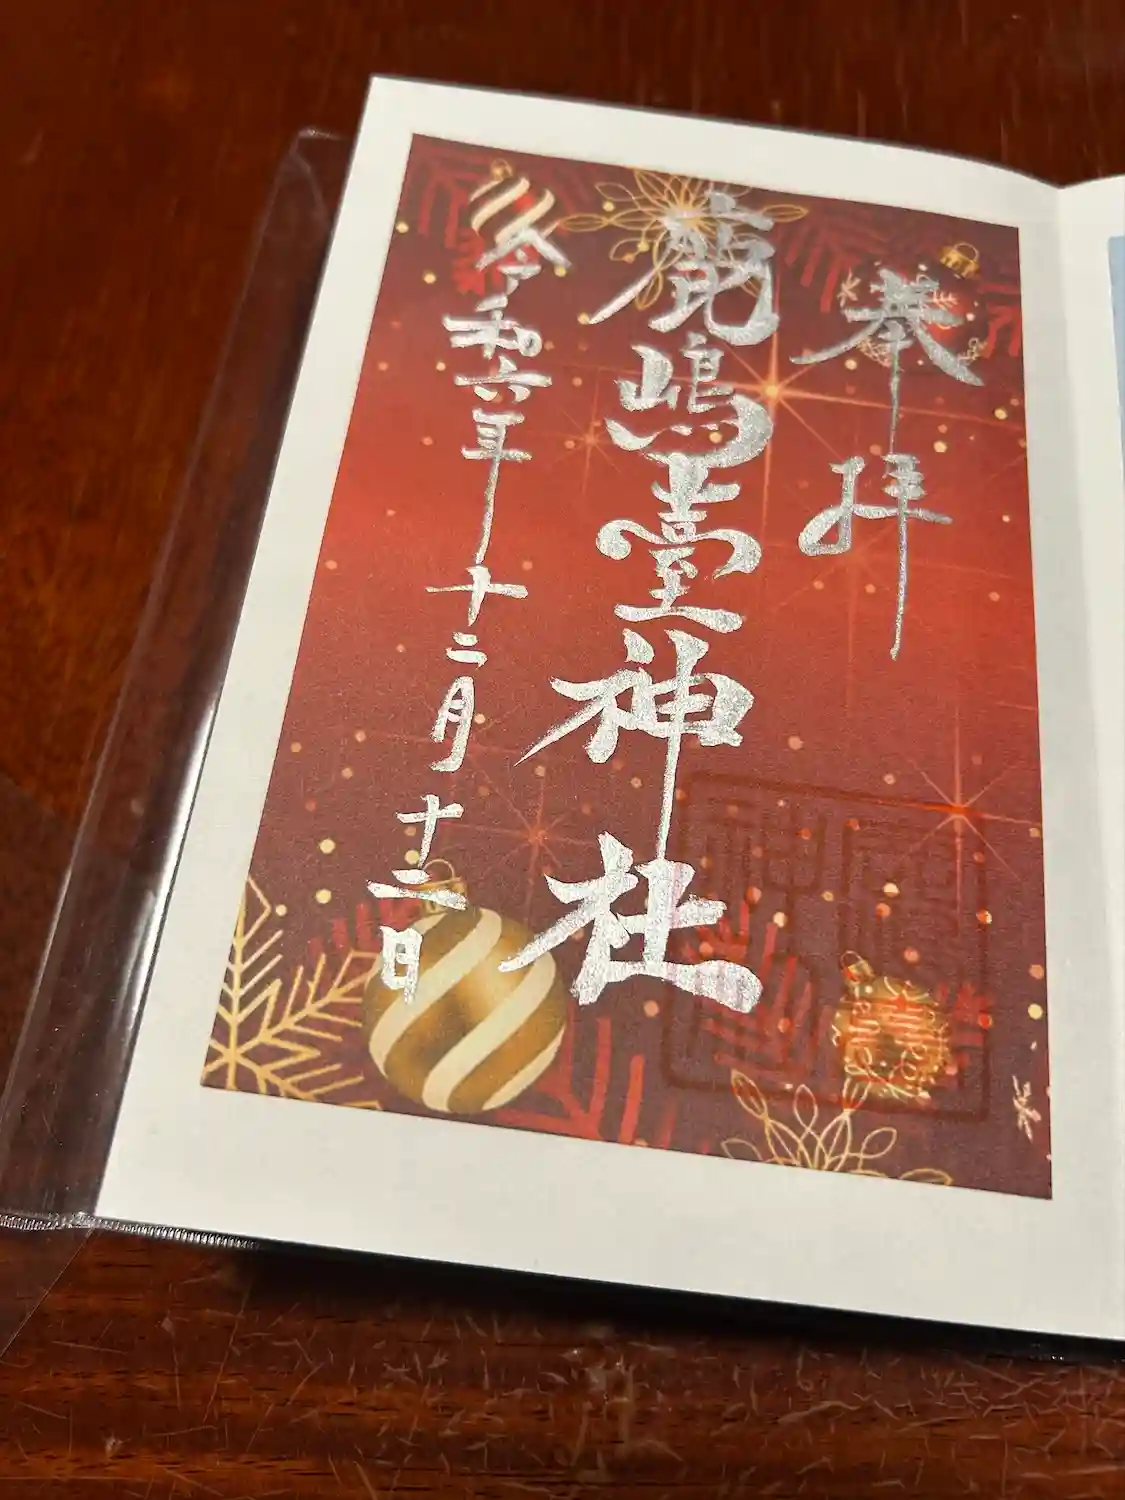 奉拝
鹿嶋臺神社
令和六年十二月十二日